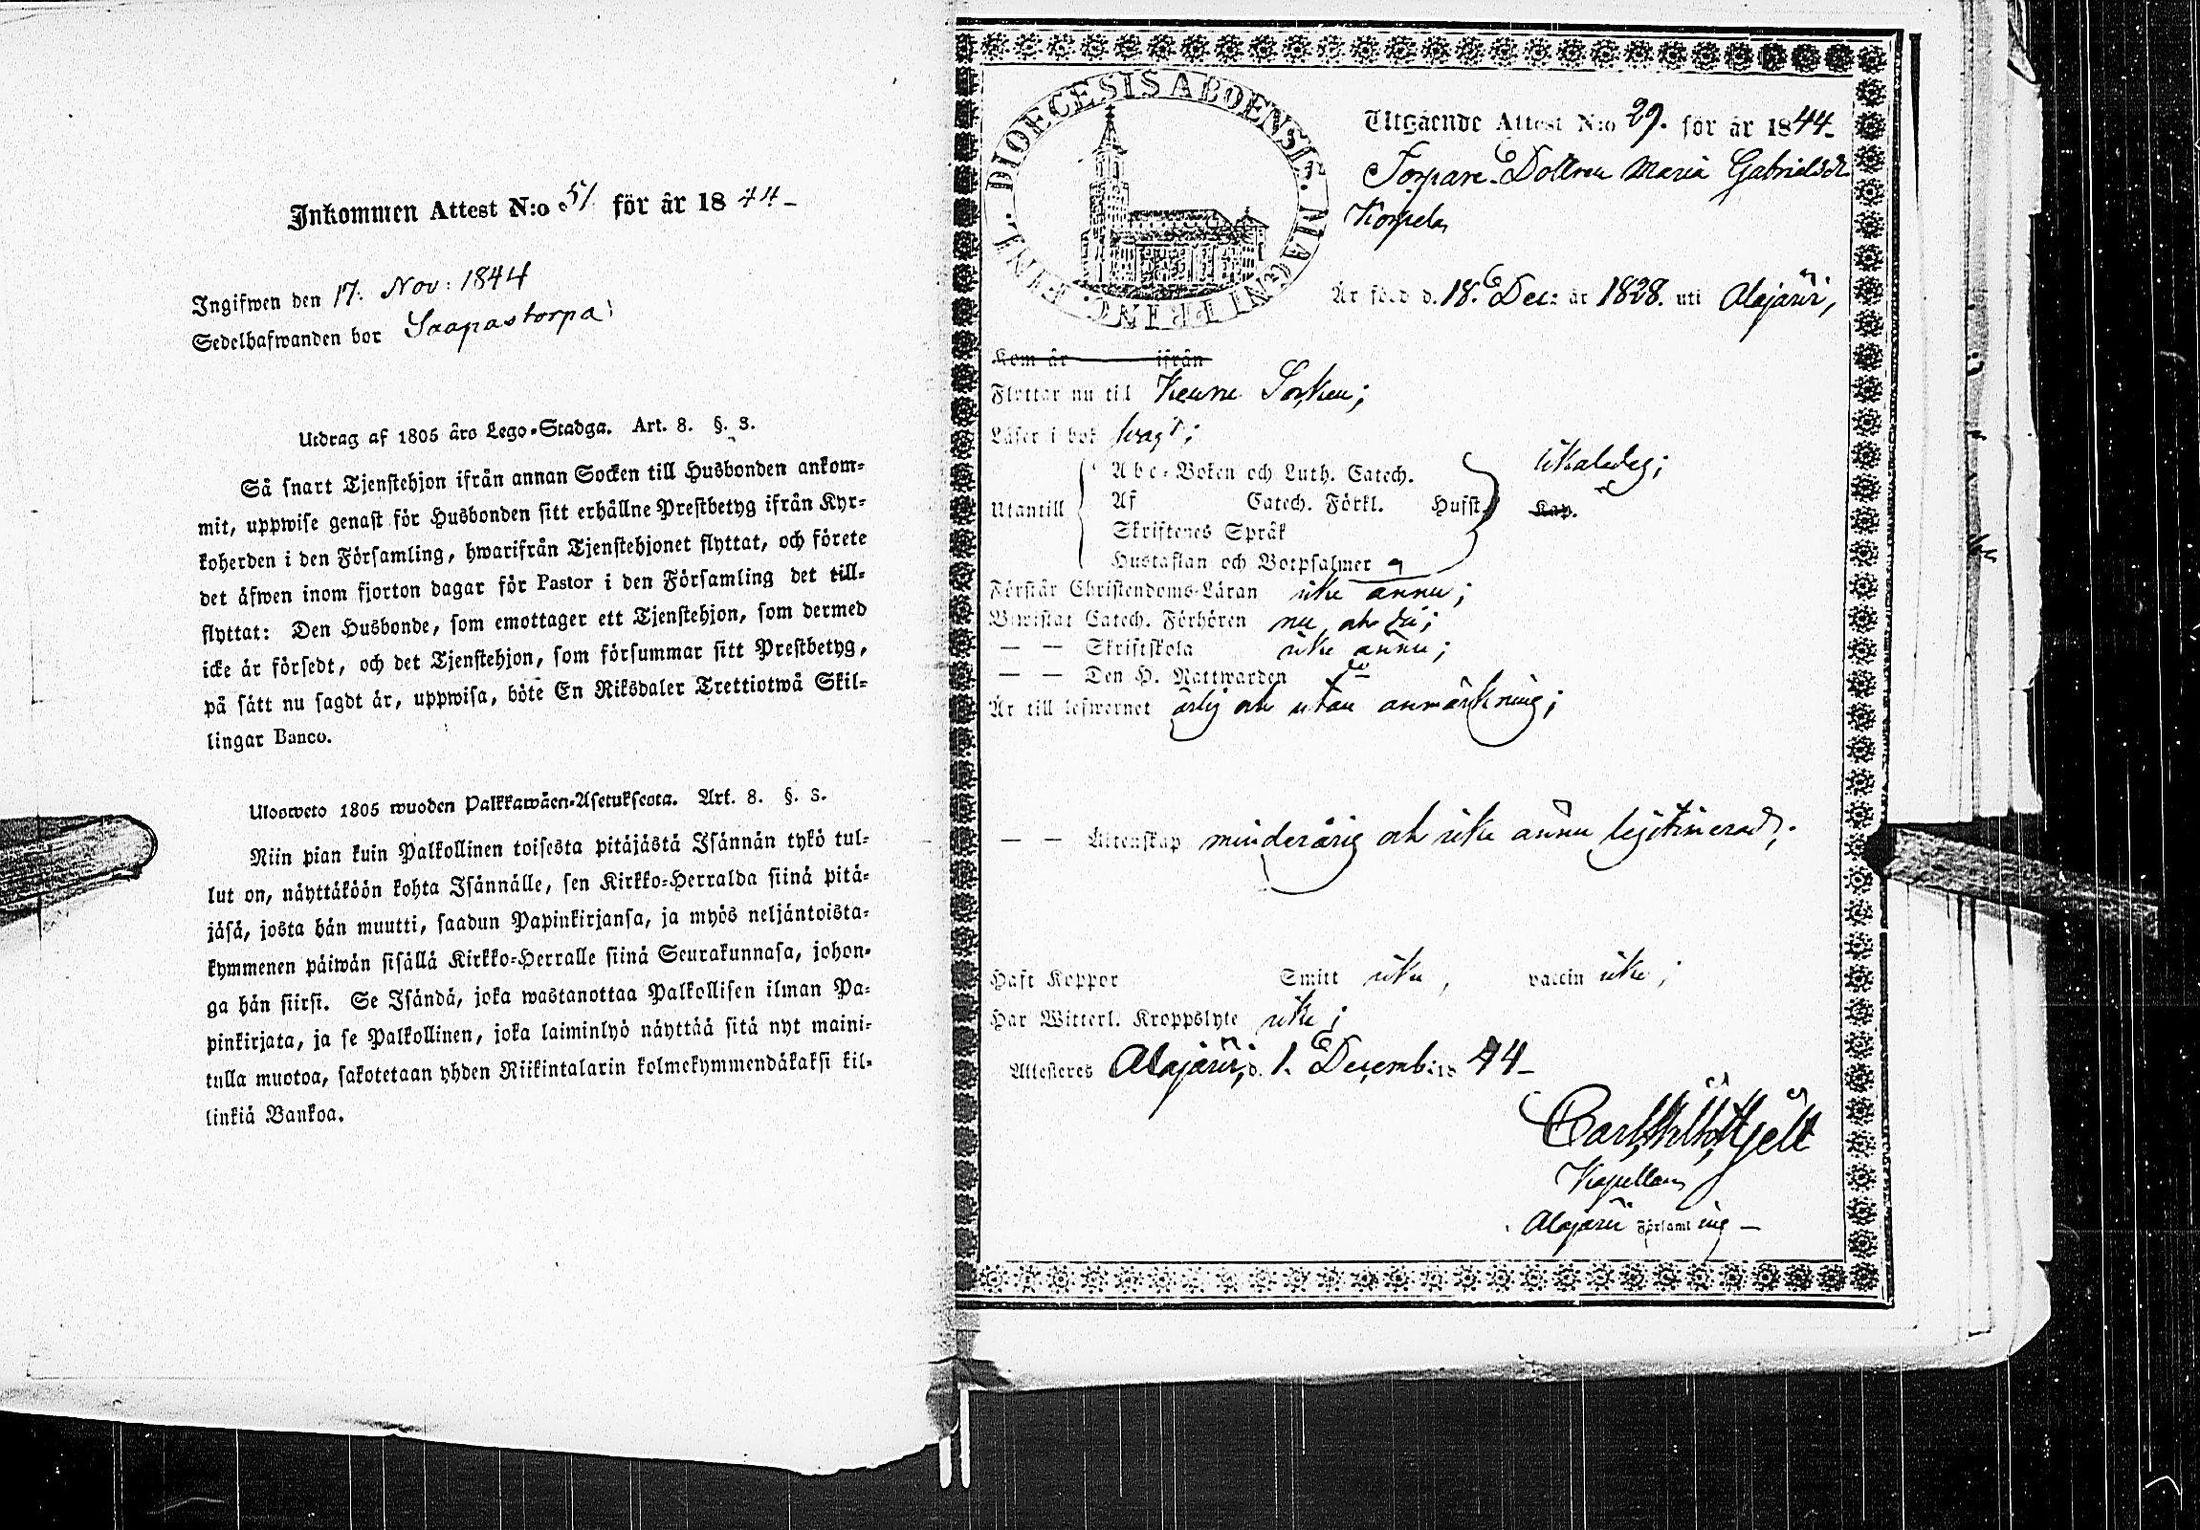 Inkommen Attest N:o 51 för år 1844-
Ingifwen den 17. Nov: 1844
Sedelhafwanden bor Saapastorpa
Utdrag af 1805 års Lego-Stadga. Art. 8. §. 3.
Så snart Tjenstehjon ifrån annan Socken till Husbonden ankom-
mit, uppwise genast för Husbonden sitt erhållne Prestbetyg ifrån Kyr-
koherden i den Församling, hwarifrån Tjenstehjonet flyttat, och förete
det äfwen inom fjorton dagar för Pastor i den Församling det till-
flyttat: Den Husbonde, som emottager ett Tjenstehjon, som dermed
icke är försedt, och det Tjenstehjon, som försummar sitt Prestbetyg,
på sätt nu sagdt är, uppwisa, böte En Riksdaler Trettiotwå Skil-
lingar Banco.
Ulosweto 1805 wuoden Palkkawäen-Asetuksesta. Art. 8. §. 3.
Niin pian kuin Palkollinen toisesta pitäjästä Isännän tykö tul-
lut on, näyttäköön kohta Isännälle, sen Kirkko-Herralda siinä pitä-
jäsä, josta hän muutti, saadun Papinkirjansa, ja myös neljäntoista-
kymmenen päiwän sisällä Kirkko-Herralle siinä Seurakunnasa, johon-
ga hän siirsi. Se Isändä, joka wastanottaa Palkollisen ilman Pa-
pinkirjata, ja se Palkollinen, joka laiminlyö näyttää sitä nyt maini-
tulla muotoa, sakotetaan yhden Riikintalarin kolmekymmendäkaksi kil-
linkiä Bankoa.
DIOECESIS ABOENSIS. MAGNI PRINC. FINL.
Utgående Attest N:o 29. för år 1844-
Torpare Dottren Maria Gabrielsdr
Korpela
Är född d. 18. Dec: år 1828. uti Alajärvi,
Kom år ifrån
Flyttar nu till Keuru Socken;
Läser i bok svagt;
Utantill
Abc-Boken och Luth. Catech.
Af Catech. Förkl. Husst. Kap.
Skriftenes Språk
Hustaflan och Botpsalmer
likaledes;
Förstår Christendoms-Läran icke ännu;
Bewistat Catech. Förhören nu och då;
— — Skriftskola icke ännu;
— — Den H. Nattwarden do
Är till lefwernet ärlig och utan anmärkning;
— — Äktenskap minderårig och icke ännu legitimerad;
Haft Koppor Smitt icke, vaccin icke;
Har Witterl. Kroppslyte icke;
Attesteres Alajärvi, d. 1. Decemb: 1844-
Hjelt
Kapellan
Alajärvi Församling —